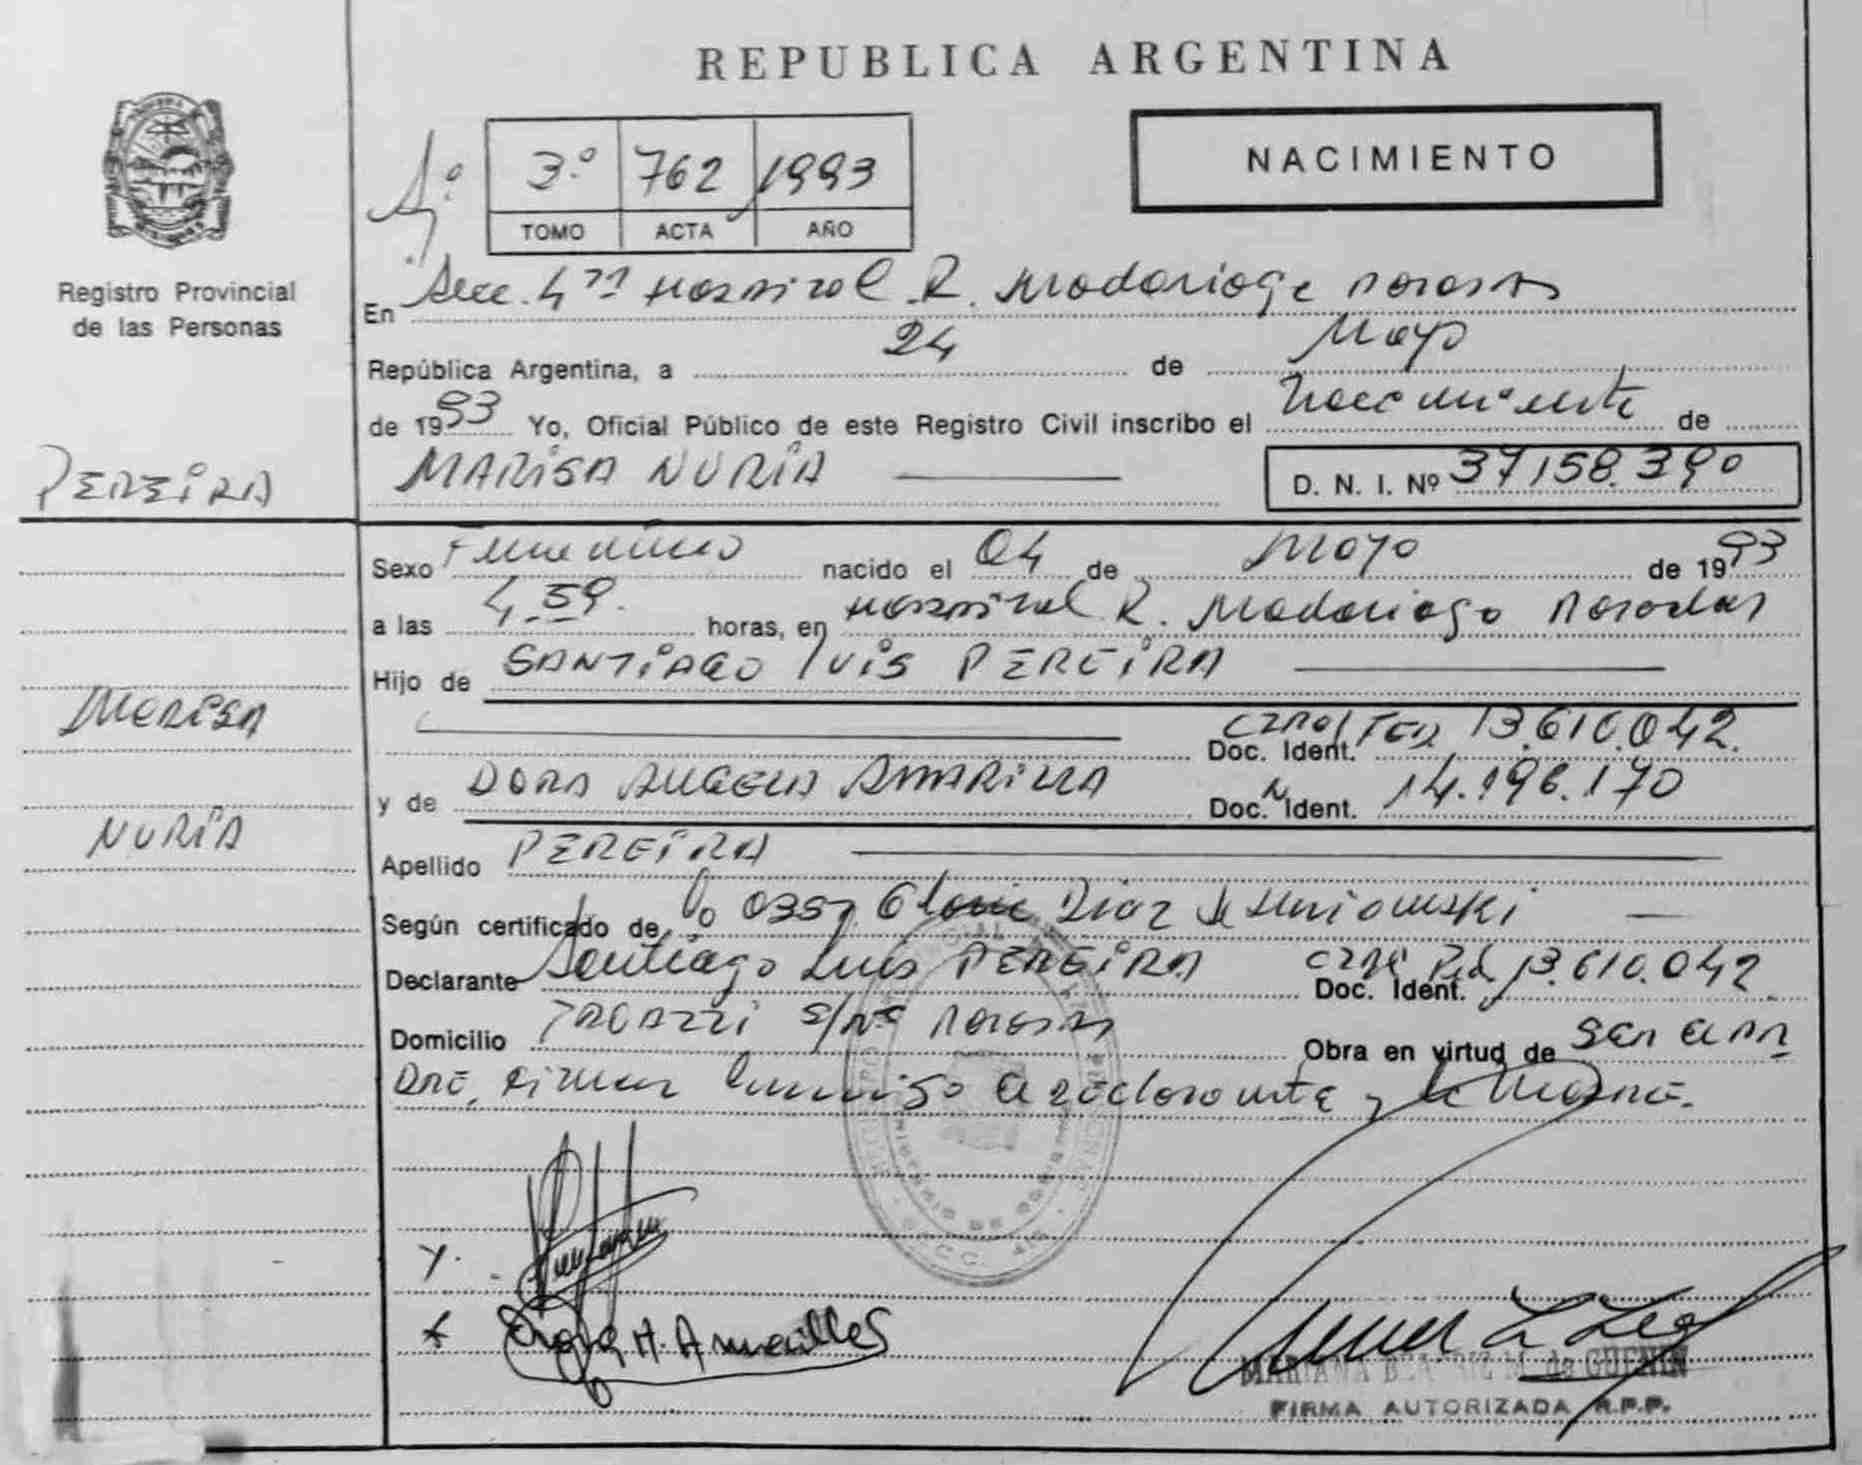 REPUBLICA ARGENTINA
NACIMIENTO
3º 762 1993
TOMO ACTA AÑO
Registro Provincial
de las Personas
En Secc. 4ª Hospital R. Madariaga Posadas
República Argentina, a 24 de Mayo
de 1993 Yo, Oficial Público de este Registro Civil inscribo el Nacimiento de
PEREIRA
MARISA NURIA
D. N. I. Nº 37.158.390
Sexo Femenino nacido el 04 de Mayo de 1993
a las 4.59. horas, en Hospital R. Madariaga Posadas
Hijo de SANTIAGO LUIS PEREIRA
MARISA
Doc. Ident. 13.610.042.
y de DORA Doc. Ident. 14.196.170
NURIA
Apellido PEREIRA
Según certificado de Diaz de
Declarante Santiago Luis PEREIRA Doc. Ident. 13.610.042
Domicilio s/nº Posadas Obra en virtud de ser el pa
dre, firman conmigo el declarante y la madre.
FIRMA AUTORIZADA R.P.P.